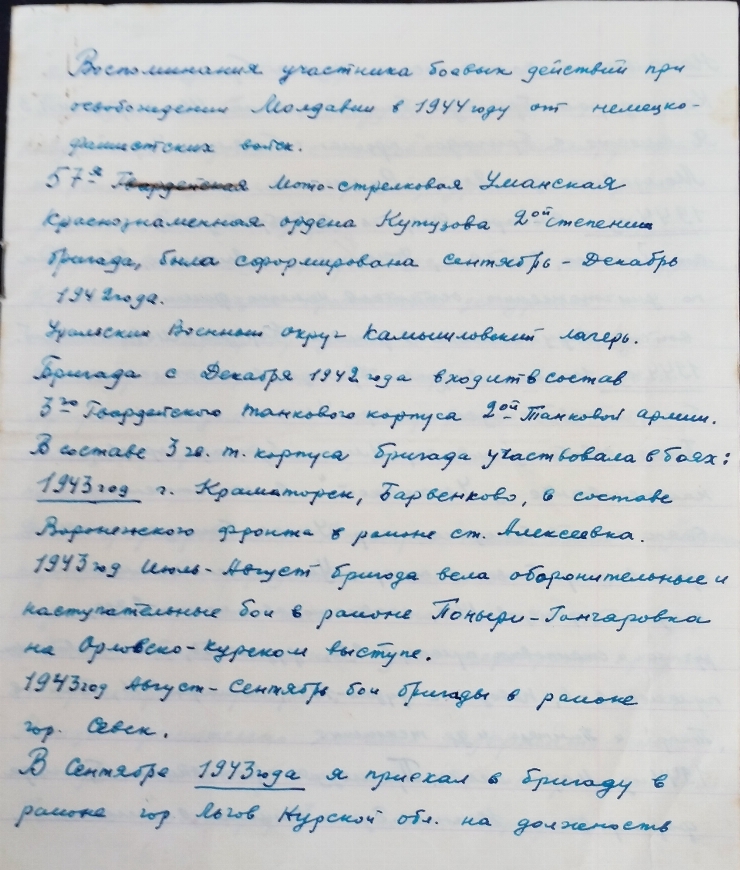 Воспоминания участника боевых действий при
освобождении Молдавии в 1944 году от немецко-
фашистских войск.
57я Гвардейская Мото-стрелковая Уманская
Краснознаменная ордена Кутузова 2ой степени
бригада, была сформирована Сентябрь - Декабрь
1942 года.
Уральский Военный округ Камышловский лагерь.
Бригада с Декабря 1942 года входит в состав
3го Гвардейского танкового корпуса 2ой Танковой армии.
В составе 3 гв. т. корпуса бригада участвовала в боях:
1943 год г. Краматорск, Барвенково, в составе
Воронежского фронта в районе ст. Алексеевка.
1943 год Июль-Август бригада вела оборонительные и
наступательные бои в районе Поныри-Гончаровка
на Орловско-Курском выступе.
1943 год Август-Сентябрь бои бригады в районе
гор. Севск.
В Сентябре 1943 года я приехал в бригаду в
районе гор Льгов Курской обл. на должность